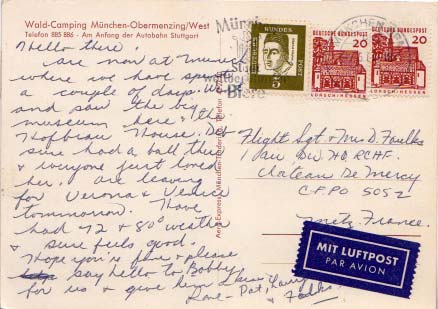 Wald-Camping München-Obermenzing/West
Telefon 885 886 - Am Anfang der Autobahn Stuttgart
Hello there!
are now at Munich
where we have spent
a couple of days. We
and saw the big
museum here & the
Hofbrau House. Deb
sure had a ball there
& everyone just loved
her. Are leaving
for Verona & Venice
tommorrow. Have
had 72 & 80° weather
& sure feels good.
Hope you're fine & please
say hello to Bobby
for us & give him
Love - Pat, Larry
& Faulks
Flight Sgt & Mrs D. Faulks
1 Air Div HQ RCAF.
Chateau De Mercy
C.F.P.O 5052
Metz France.
DEUTSCHE BUNDESPOST
5
20
LORSCH/HESSEN
20
LORSCH/HESSEN
MÜNCHEN
Münch
Stadt
Biere
MIT LUFTPOST
PAR AVION